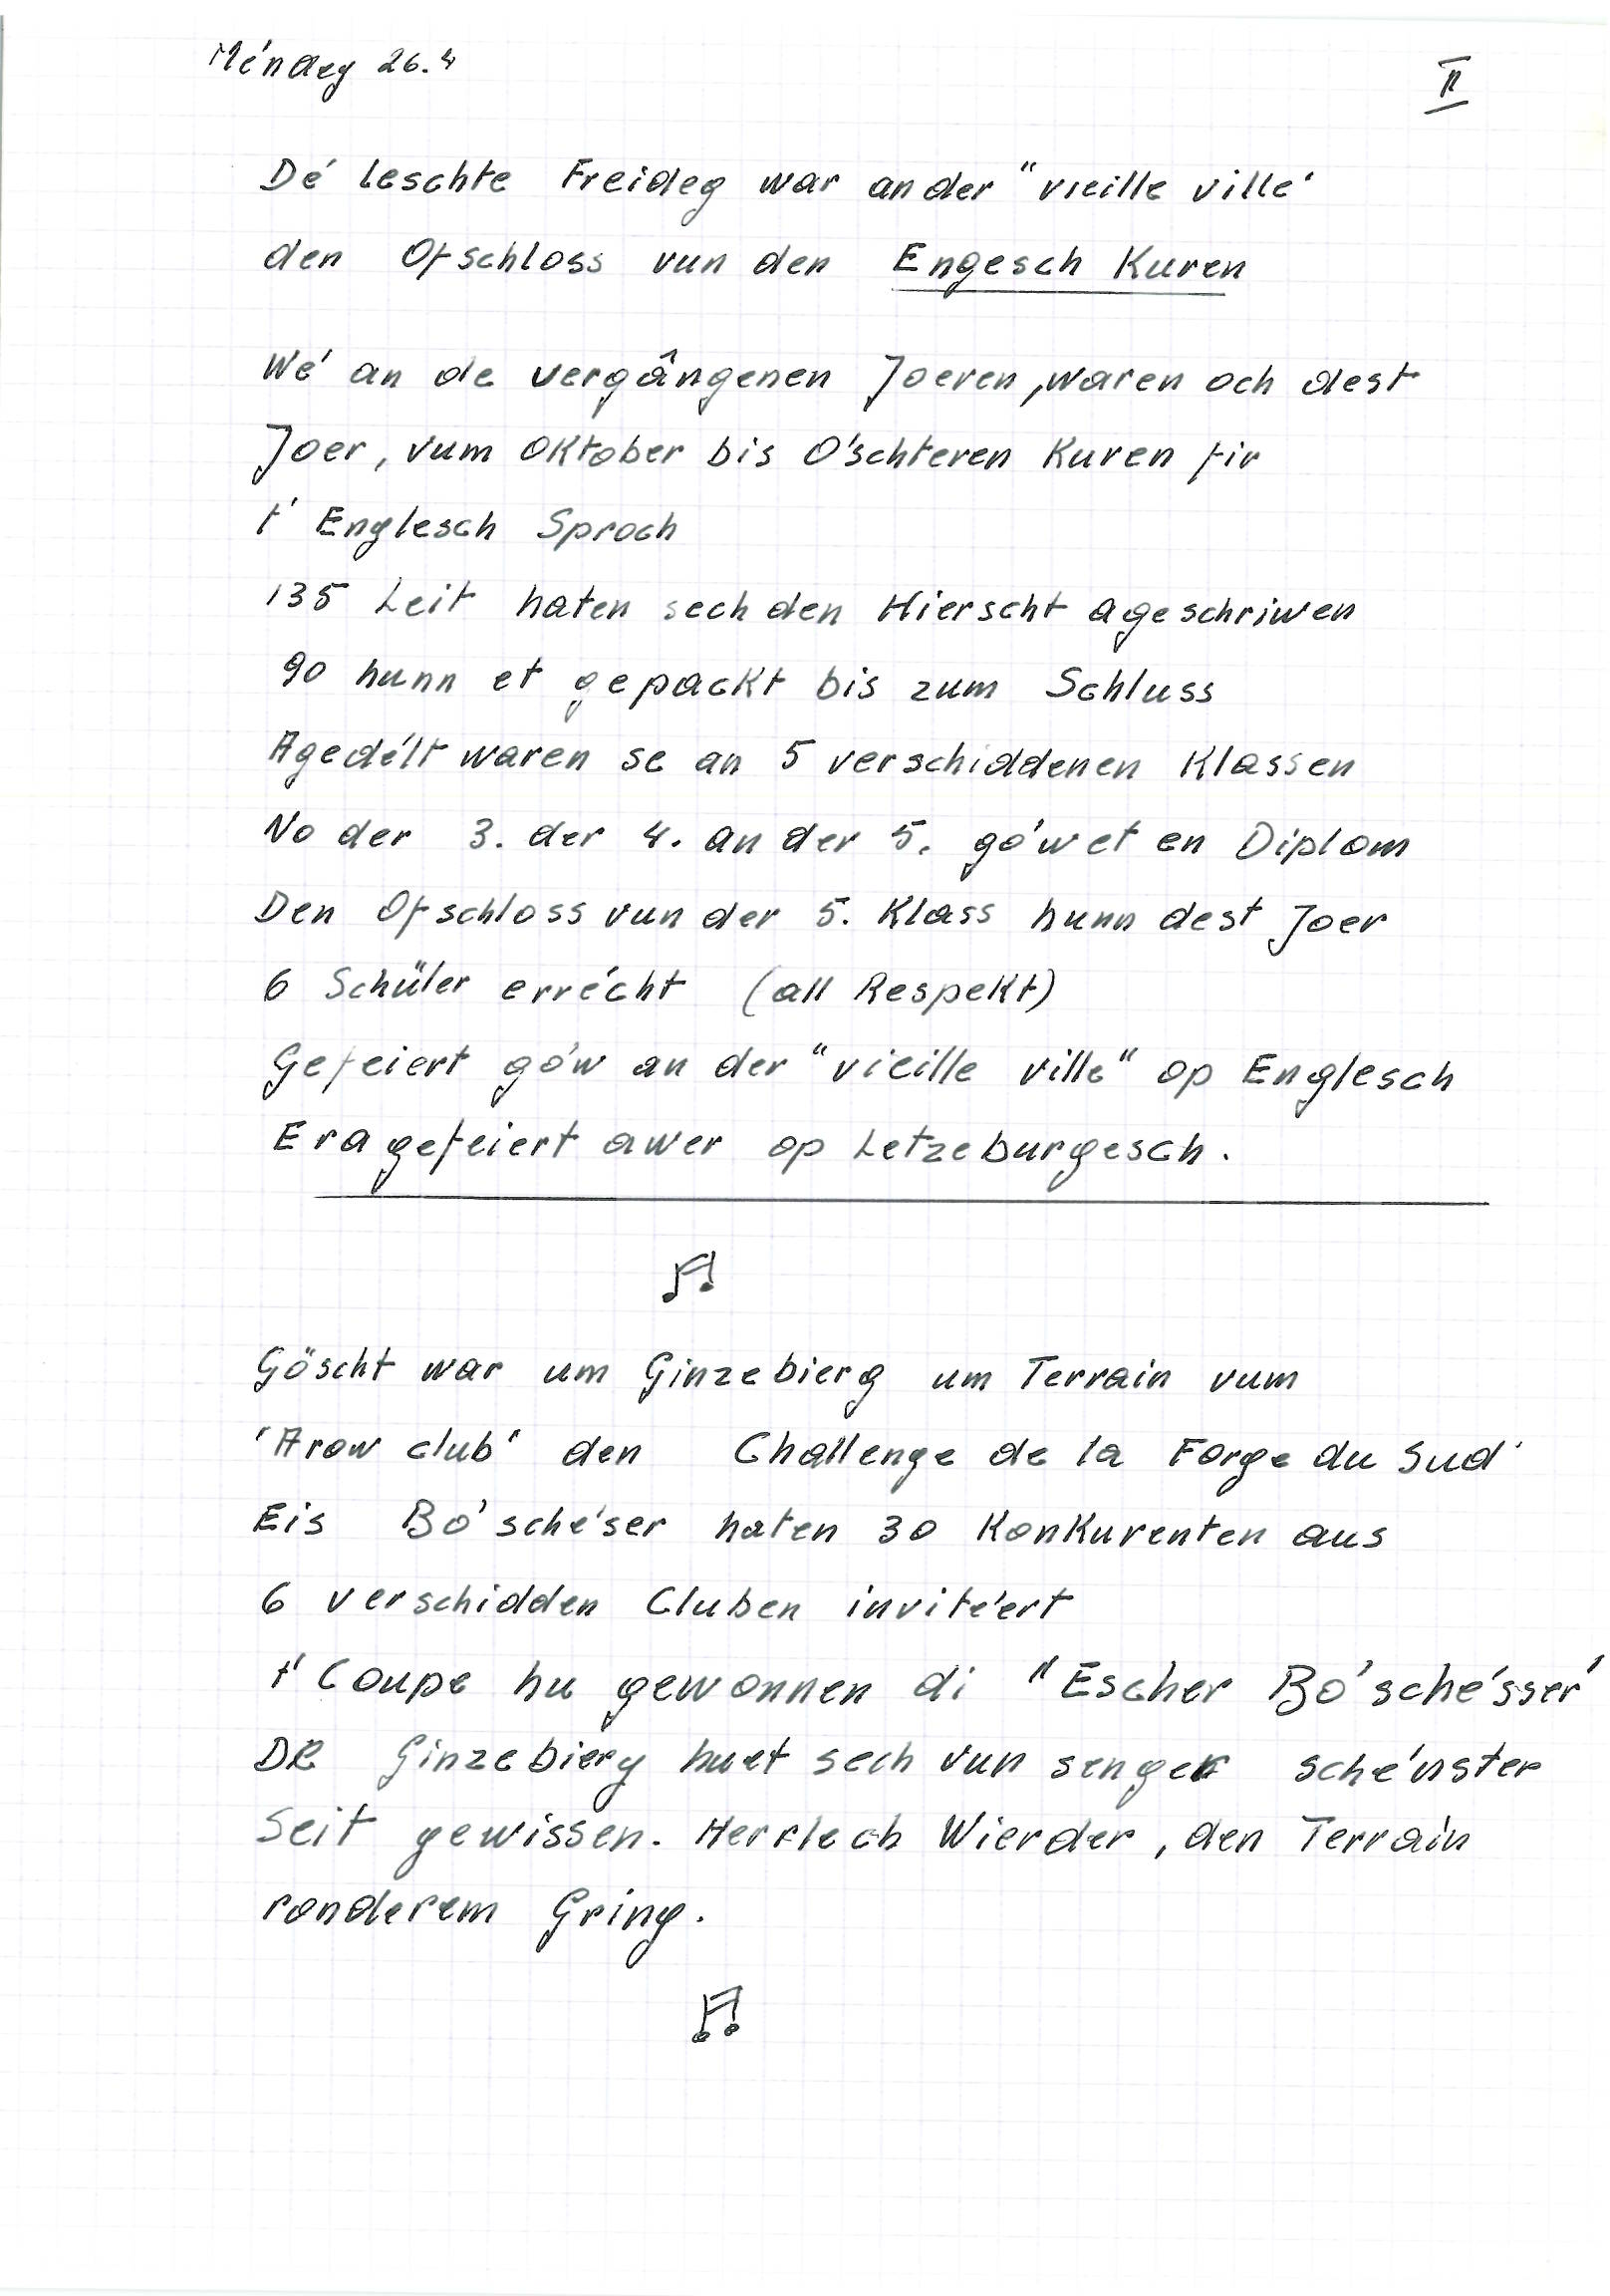 Méndeg 26.4
II
Dé leschte Freideg war an der "vieille ville'
den Ofschloss vun den Engesch Kuren
Wé an de vergângenen Joeren, waren och dest
Joer, vum Oktober bis O'schteren Kuren fir
t' Englesch Sproch
135 Leit haten sech den Hierscht ageschriwen
90 hunn et gepackt bis zum Schluss
Agedélt waren se an 5 verschiddenen Klassen
No der 3. der 4. an der 5. gówet en Diplom
Den Ofschloss vun der 5. Klass hunn dest Joer
6 Schüler errécht (all Respekt)
Gefeiert gów an der "vieille ville" op Englesch
Eragefeiert awer op Letzeburgesch.
Göscht war um Ginzebierg um Terrain vum
'Arow club' den Challenge de la Forge du Sud'
Eis Bo'sché'ser haten 30 Konkurenten aus
6 verschidden Cluben invitéert
t' Coupe hu gewonnen di "Escher Bo'sché'sser'
DR Ginzebierg huet sech vun senger schénster
Seit gewissen. Herrlech Wierder, den Terrain
ronderem Gring.